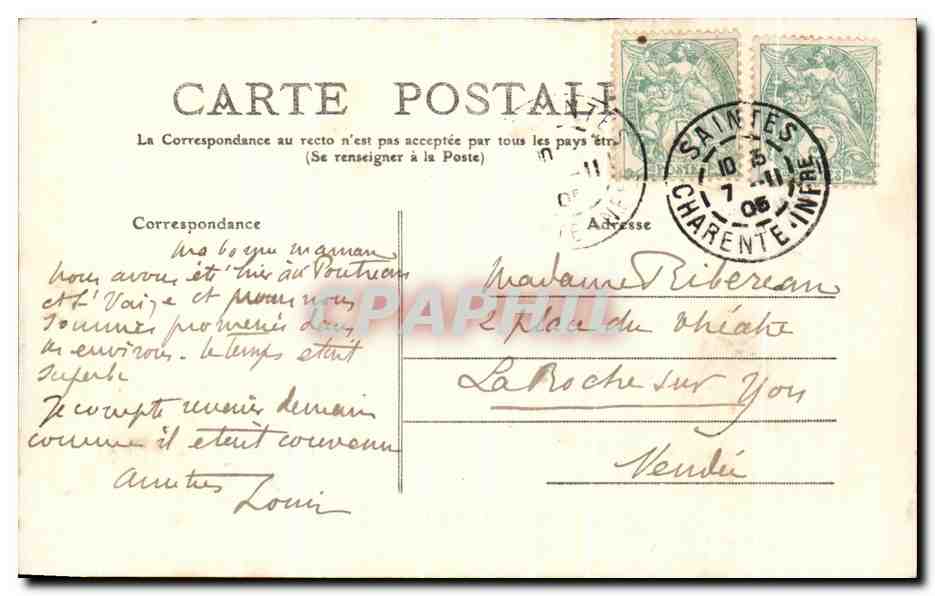 CARTE POSTALE
La Correspondance au recto n'est pas acceptée par tous les pays
(Se renseigner à la Poste)
SAINTES
10 15
7 -11
05
CHARENTE-INFRE
Correspondance
Adresse
Ma bonne maman
Nous avons été hier au
et St Vaize et nous nous
sommes promenés dans
les environs. le temps etait
superbe
Je compte revenir demain
comme il etait convenu
Amitiés
Louis
Madame Ribereau
2 place du théatre
La Roche sur Yon
Vendée
CPAPHIL